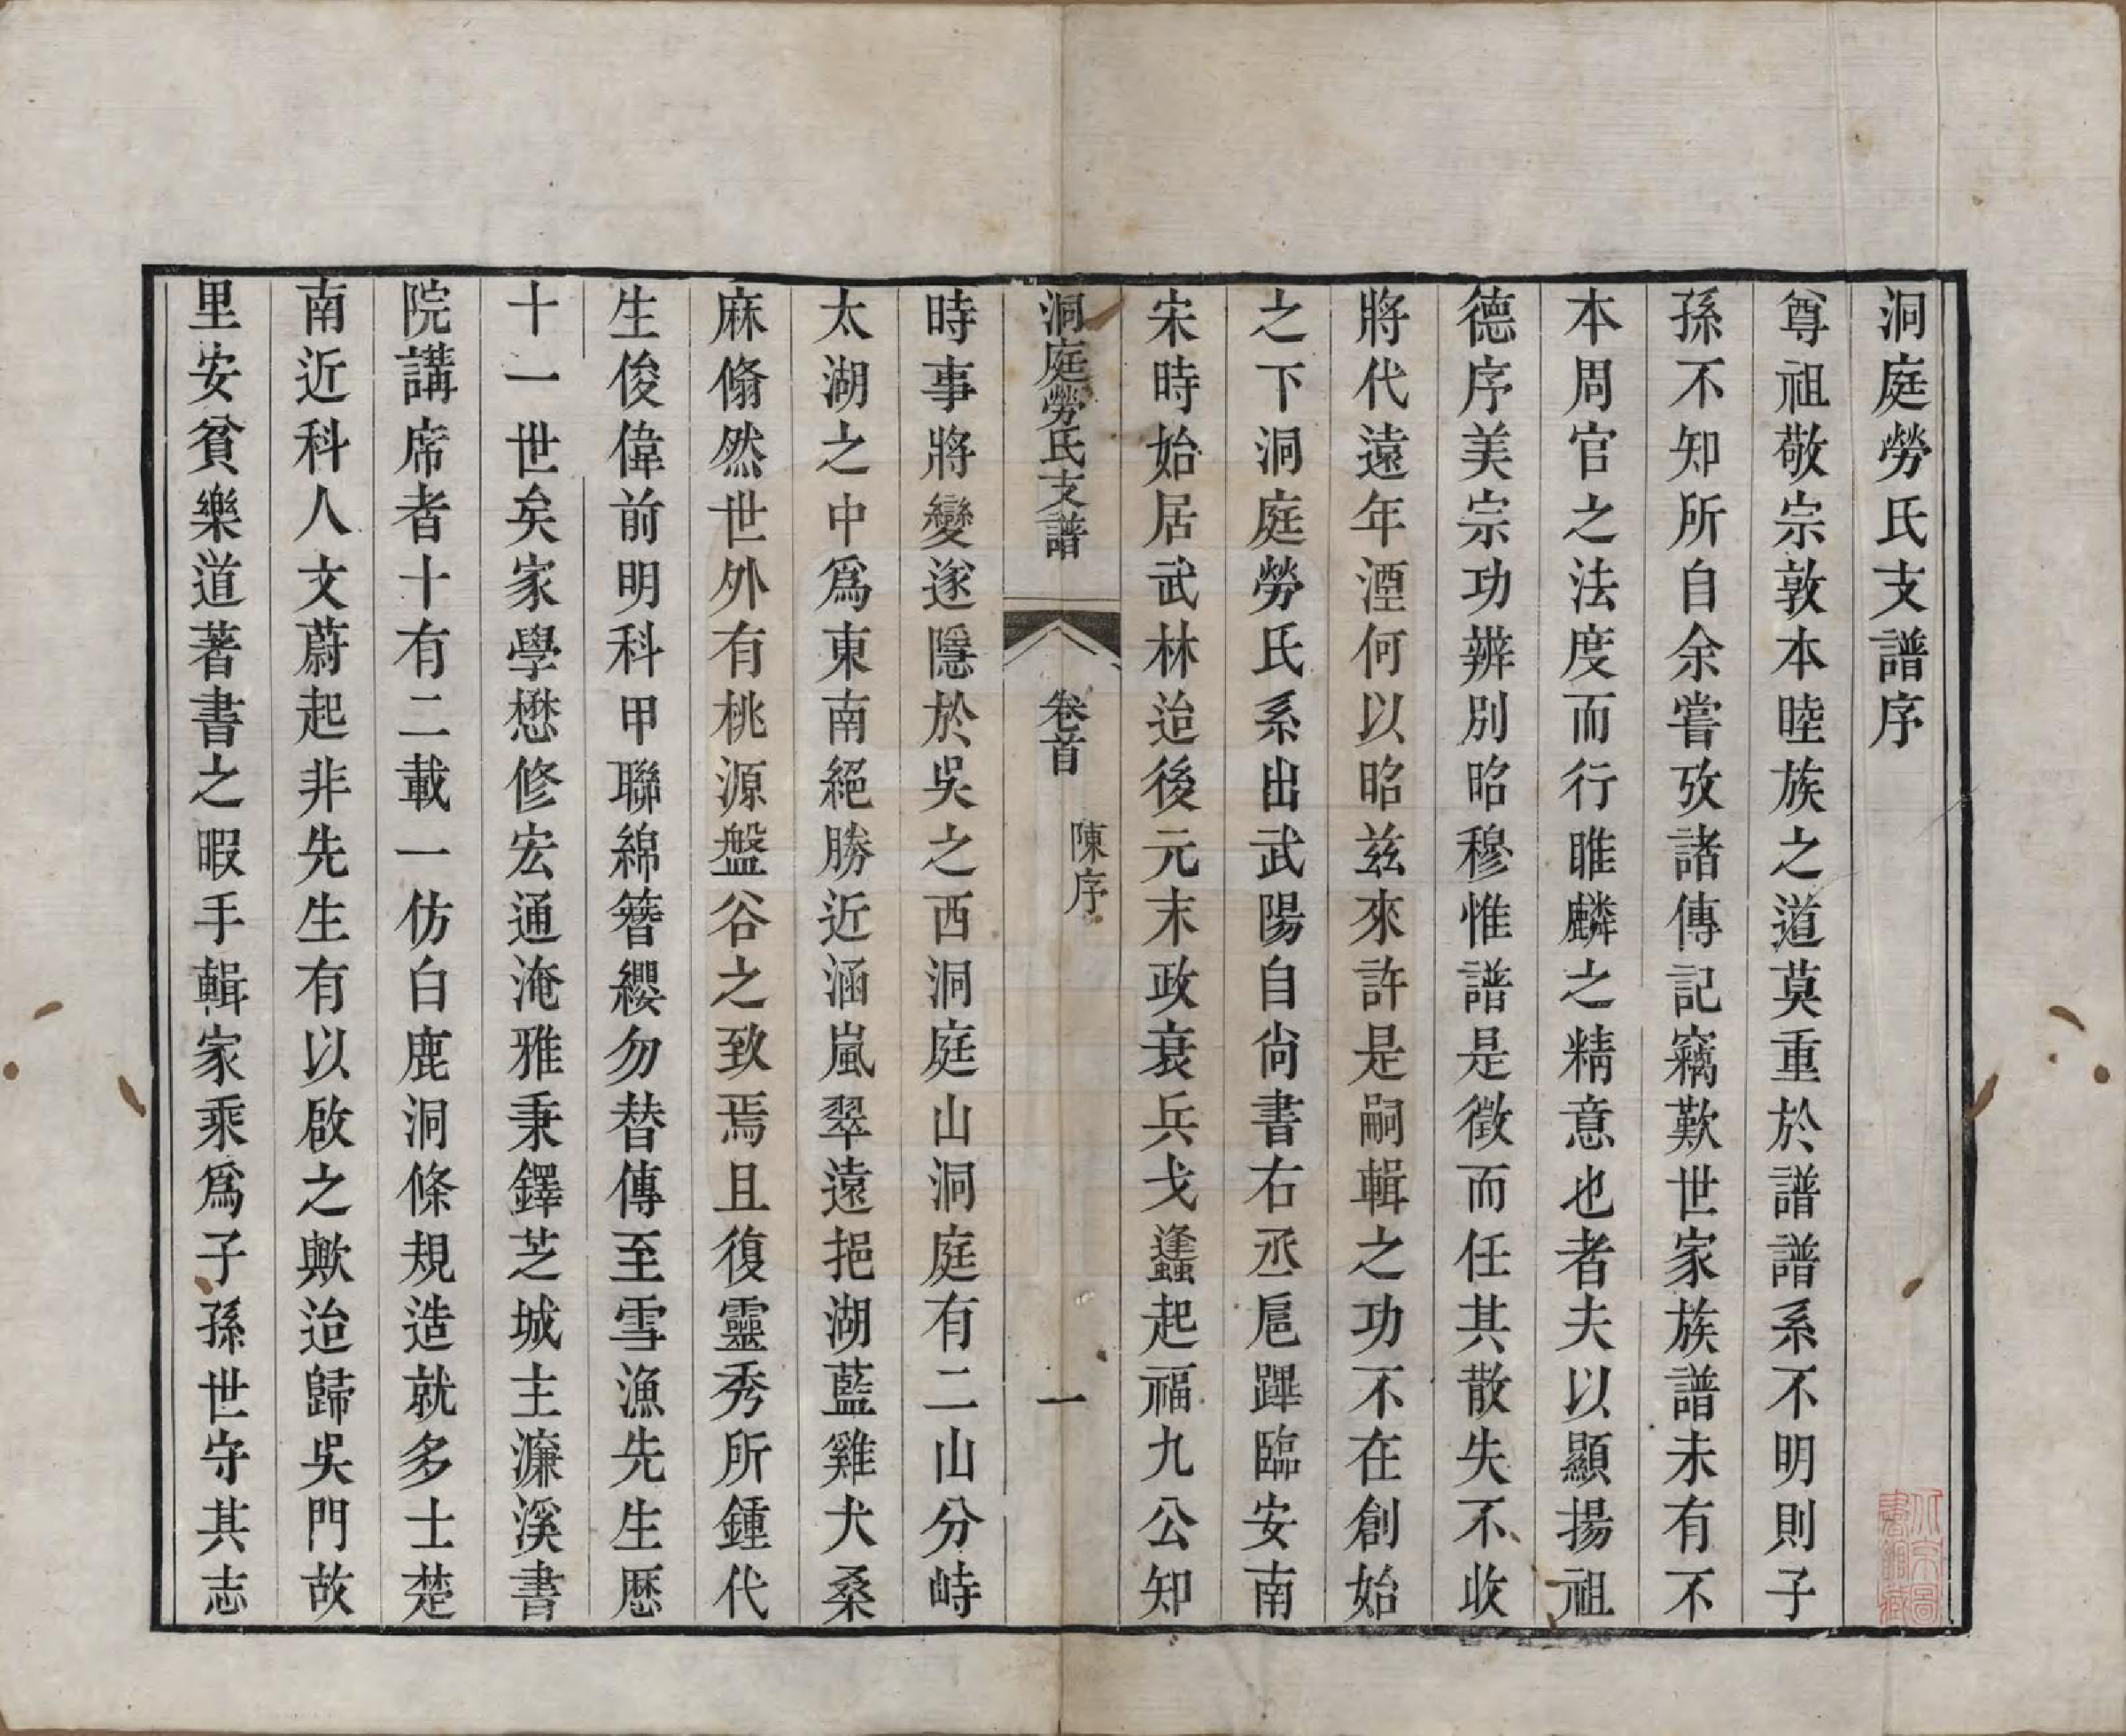 洞庭勞氏支譜序
尊祖敬宗敦本睦族之道莫重於譜譜系不明則子
孫不知所自余嘗攷諸傳記竊歎世家族譜未有不
本周官之法度而行睢麟之精意也者夫以顯揚祖
德序美宗功辨別昭穆惟譜是徵而任其散失不收
將代遠年湮何以昭茲來許是嗣輯之功不在創始
之下洞庭勞氏系出武陽自尙書右丞扈蹕臨安南
宋時始居武林迨後元末政衰兵戈蠭起福九公知
洞庭勞氏支譜
卷首
陳序
一
時事將變遂隱於吳之西洞庭山洞庭有二山分峙
太湖之中爲東南絕勝近涵嵐翠遠挹湖藍雞犬桑
麻翛然世外有桃源盤谷之致焉且復靈秀所鍾代
生俊偉前明科甲聯綿簪纓勿替傳至雪漁先生厯
十一世矣家學懋修宏通淹雅秉鐸芝城主濂溪書
院講席者十有二載一仿白鹿洞條規造就多士楚
南近科人文蔚起非先生有以啟之歟迨歸吳門故
里安貧樂道著書之暇手輯家乘爲子孫世守其志
北京圖
書館藏